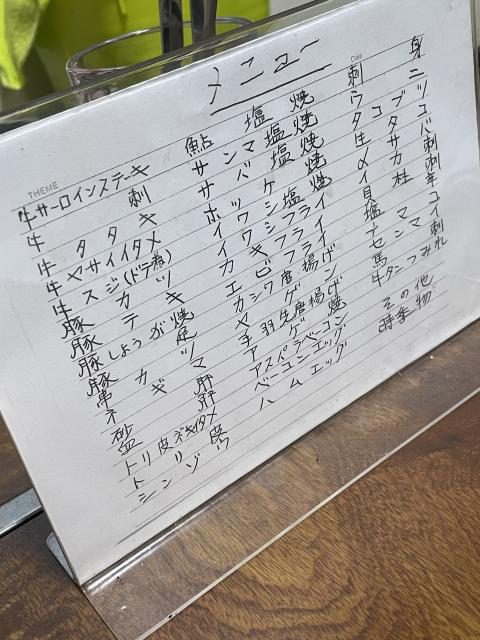 メニュー
THEME
Date
牛サーロインステーキ
牛 刺
牛 タタキ
牛 ヤサイイタメ
牛 スジ(ドテ煮)
豚 カツ
豚 テキ
豚 しょうが焼
豚 足
串 カツ
ネギマ
肝
トリ皮ネギイタメ
トリ皮
シンゾウ
鮎塩焼
サンマ塩焼
サバ塩焼
ホッケ焼
イワシ塩焼
イワシフライ
カキフライ
エビフライ
カシワ唐揚げ
手羽先唐揚げ
アゲ焼
アスパラベーコン
ベーコンエッグ
ハムエッグ
刺身
ウニ
タコブツ
生タコ
〆サバ
イカ刺
貝柱刺
塩辛
ナマコ
センマイ
馬刺
牛タンつみれ
その他
時季物